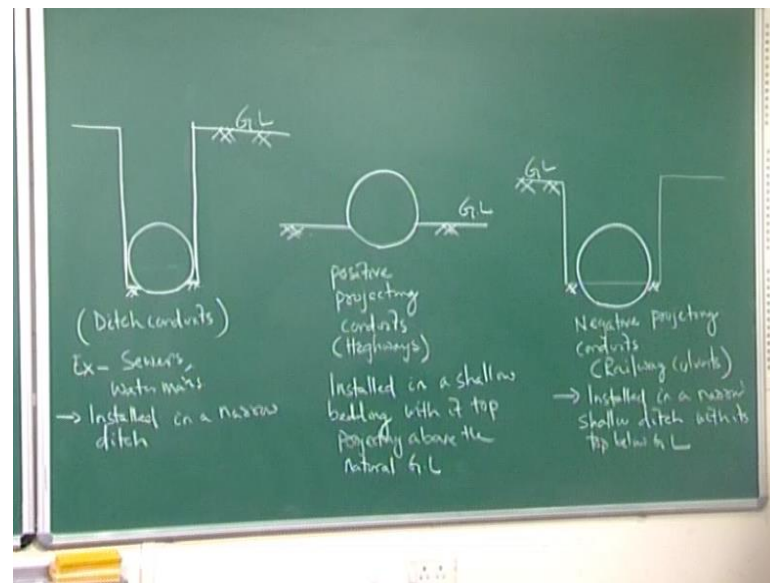 G.L
(Ditch conduits)
Ex- Sewers,
Water mains
→ Installed in a narrow
ditch
G.L
positive
projecting
conduits
(Heghways)
Installed in a shallow
bedding with it top
projecting above the
natural G.L
G.L
Negative projecting
conduits
(Railway Culverts)
→ Installed in a narrow
shallow ditch with its
top below G L